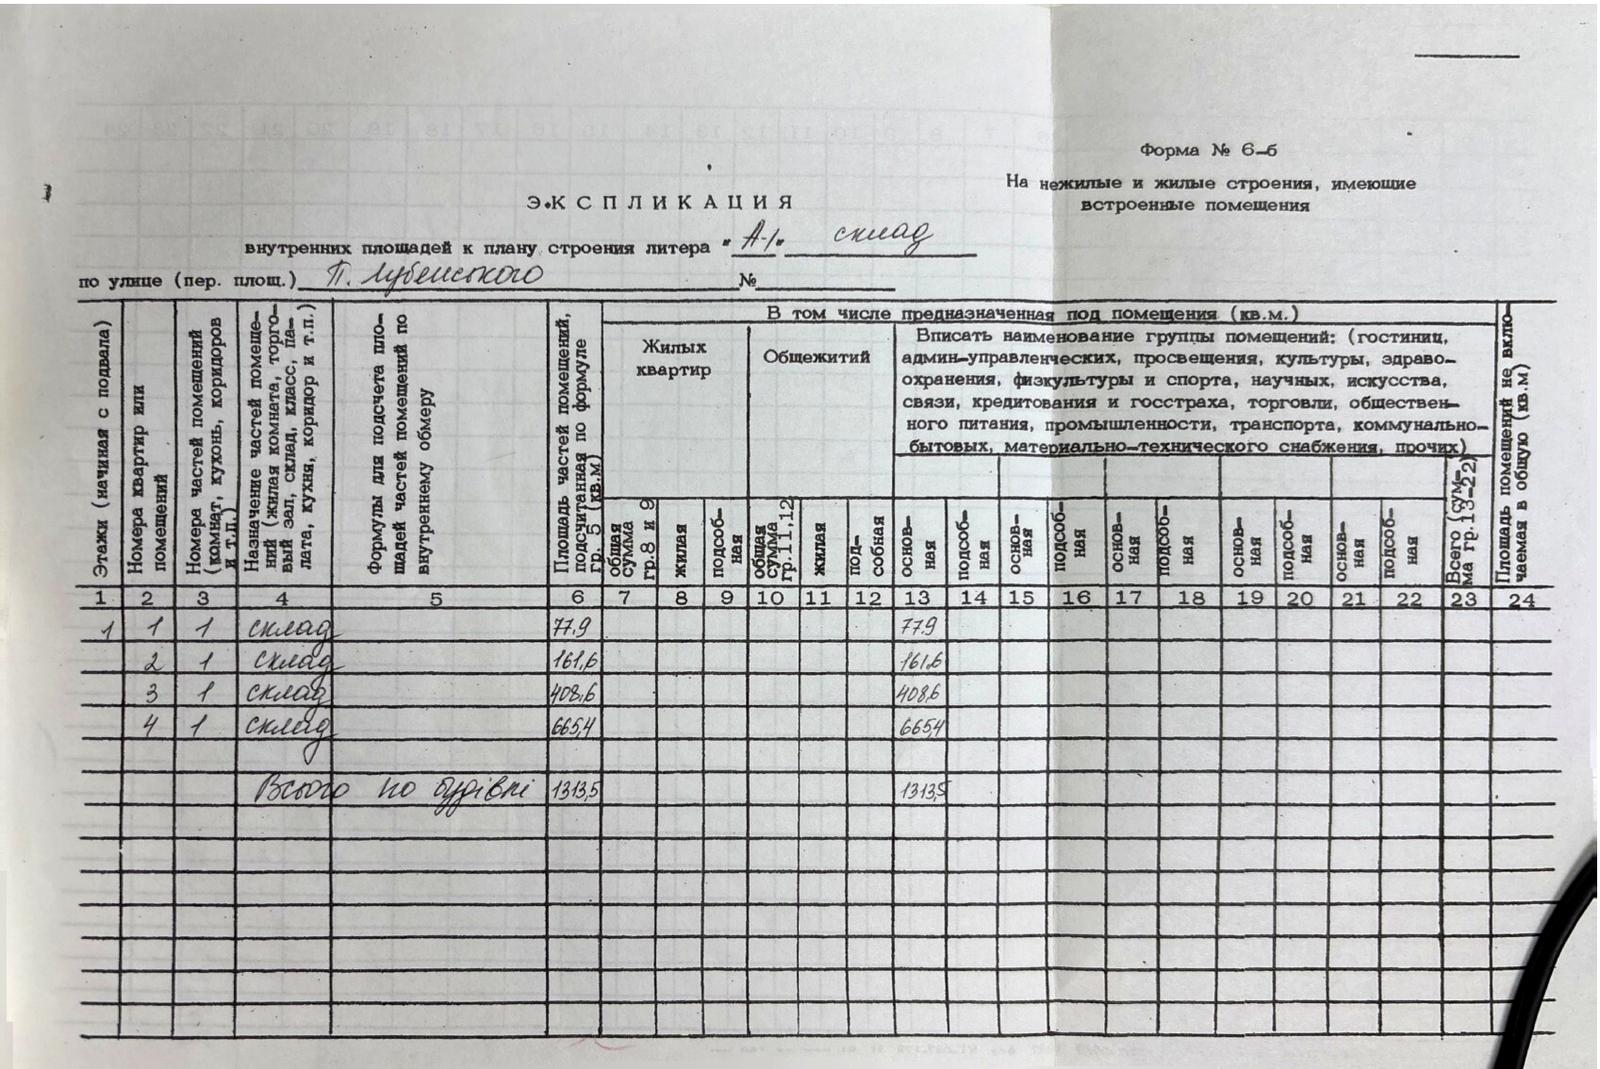 Форма № 6-б
На нежилые и жилые строения, имеющие
встроенные помещения
ЭКСПЛИКАЦИЯ
внутренних площадей к плану строения литера "А-1" склад
по улице (пер. площ.) П. Лубенського №
Этажи (начиная с подвала)
Номера квартир или
помещений
Номера частей помещений
(комнат, кухонь, коридоров
и т.п.)
Назначение частей помеще-
ний (жилая комната, торго-
вый зал, склад, класс, па-
лата, кухня, коридор и т.п.)
Формулы для подсчета пло-
щадей частей помещений по
внутреннему обмеру
Площадь частей помещений,
подсчитанная по формуле
гр. 5 (кв.м)
В том числе предназначенная под помещения (кв.м.)
Жилых
квартир
Общежитий
Вписать наименование группы помещений: (гостиниц,
админ-управленческих, просвещения, культуры, здраво-
охранения, физкультуры и спорта, научных, искусства,
связи, кредитования и госстраха, торговли, обществен-
ного питания, промышленности, транспорта, коммунально-
бытовых, материально-технического снабжения, прочих)
общая
сумма
гр.8 и 9
жилая
подсоб-
ная
общая
сумма
гр.11,12
жилая
под-
собная
основ-
ная
подсоб-
ная
основ-
ная
подсоб-
ная
основ-
ная
подсоб-
ная
основ-
ная
подсоб-
ная
основ-
ная
подсоб-
ная
Всего (сум-
ма гр.13-22)
Площадь помещений не вклю-
чаемая в общую (кв.м)
1 2 3 4 5 6 7 8 9 10 11 12 13 14 15 16 17 18 19 20 21 22 23 24
1 1 1 склад 77.9 77.9
2 1 склад 161,6 161,6
3 1 склад 408,6 408,6
4 1 склад 665,4 665,4
Всього по будівлі 1313,5 1313,5